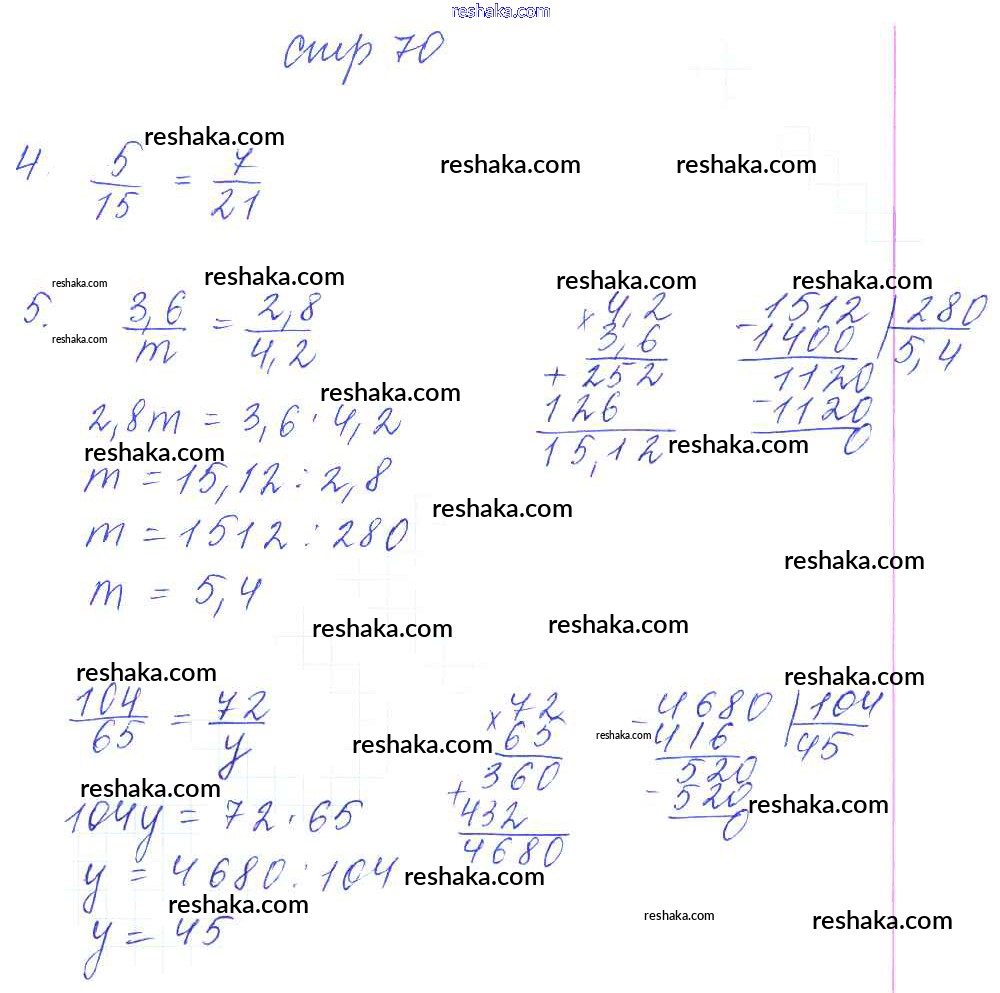 reshaka.com
стр 70
reshaka.com
reshaka.com reshaka.com
4. 5/15 = 7/21
reshaka.com reshaka.com reshaka.com reshaka.com
5. 3,6/m = 2,8/4,2
reshaka.com
× 4,2
3,6
+ 252
126
15,12
- 1512 | 280
1400 5,4
1120
- 1120
0
reshaka.com
2,8m = 3,6 · 4,2
reshaka.com reshaka.com
m = 15,12 : 2,8
reshaka.com
m = 1512 : 280
reshaka.com
m = 5,4
reshaka.com reshaka.com
reshaka.com reshaka.com
104/65 = 72/y
reshaka.com reshaka.com
× 72
65
360
+ 432
4680
- 4680 | 104
416 45
520
- 520
0
reshaka.com reshaka.com
104y = 72 · 65
y = 4680 : 104
reshaka.com
reshaka.com reshaka.com reshaka.com
y = 45